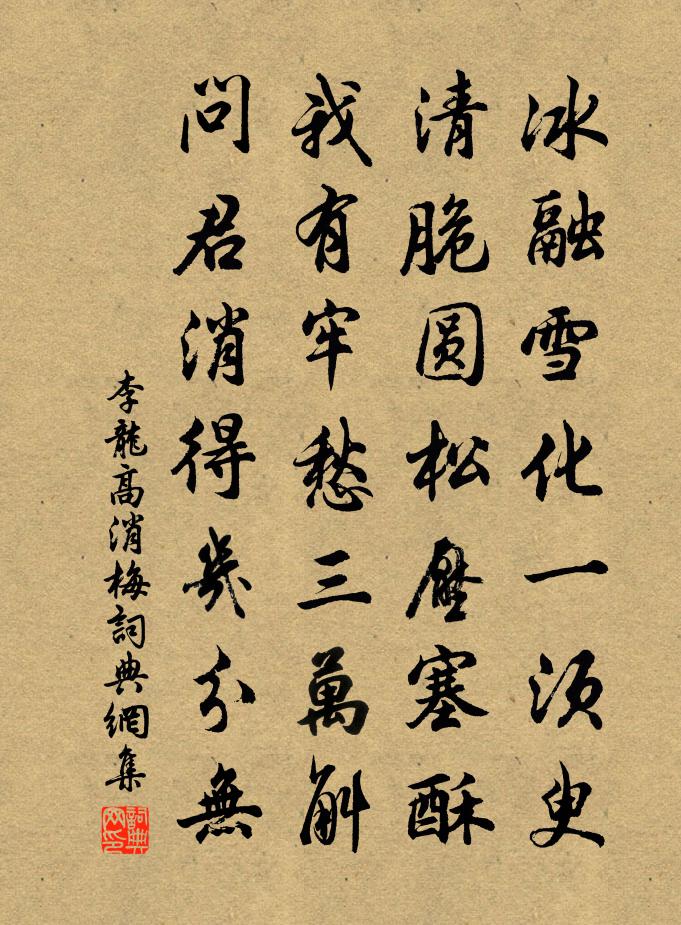 冰融雪化一须臾
清脆圆松壓塞酥
我有牢愁三萬斛
問君消得幾分無
李龍高消梅詞典網集
詞典網印